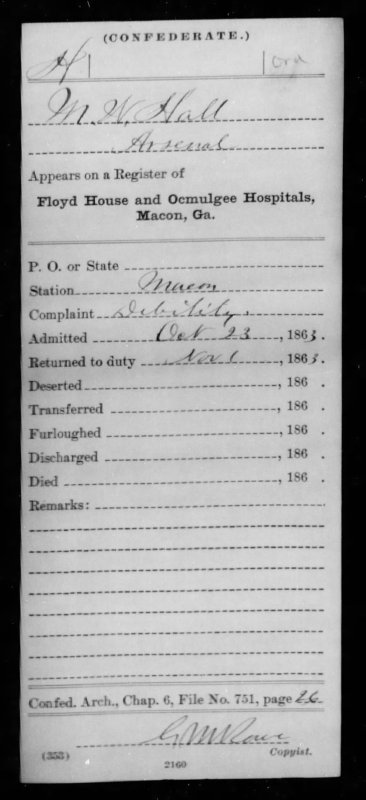 (CONFEDERATE.)
H | | Org
M. W. Hall
Arsenal
Appears on a Register of
Floyd House and Ocmulgee Hospitals,
Macon, Ga.
P. O. or State
Station Macon
Complaint Debility.
Admitted Oct 23, 1863.
Returned to duty Nov 1, 1863.
Deserted , 186 .
Transferred , 186 .
Furloughed , 186 .
Discharged , 186 .
Died , 186 .
Remarks:
Confed. Arch., Chap. 6, File No. 751, page 26
(353) Copyist.
2160